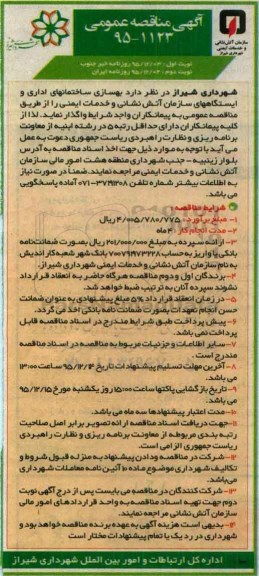 آگهی مناقصه عمومی
۹۵-۱۱۲۳
سازمان آتش نشانی
و خدمات ایمنی
شهرداری شیراز
نوبت اول: ۹۵/۱۲/۰۲ روزنامه خبر جنوب
نوبت دوم: ۹۵/۱۲/۰۳ روزنامه ایران
شهرداری شیراز در نظر دارد بهسازی ساختمانهای اداری و
ایستگاههای سازمان آتش نشانی و خدمات ایمنی را از طریق
مناقصه عمومی به پیمانکاران واجد شرایط واگذار نماید. لذا از
کلیه پیمانکاران دارای حداقل رتبه ۵ در رشته ابنیه از معاونت
برنامه ریزی و نظارت راهبردی ریاست جمهوری دعوت به عمل
می آید با توجه به موارد ذیل جهت اخذ اسناد مناقصه به آدرس
بلوار زینبیه - جنب شهرداری منطقه هشت امور مالی سازمان
آتش نشانی و خدمات ایمنی مراجعه نمایند. ضمنا در صورت نیاز
به اطلاعات بیشتر شماره تلفن ۳۷۲۹۱۲۰۸-۰۷۱ آماده پاسخگویی
می باشد.
شرایط مناقصه:
۱- مبلغ برآورد: ۴/۰۰۵/۷۸۰/۷۷۵ ریال
۲- مدت انجام کار: ۴ ماه
۳- ارائه سپرده به مبلغ ۲۰۱/۰۰۰/۰۰۰ ریال بصورت ضمانت نامه
بانکی یا واریز به حساب ۷۰۰۷۹۱۹۷۳۲۲۸ بانک شهر شعبه کاراندیش
به نام سازمان آتش نشانی و خدمات ایمنی شهرداری شیراز.
۴- برندگان اول و دوم مناقصه هرگاه حاضر به انعقاد قرارداد
نشوند سپرده آنان به ترتیب ضبط خواهد شد.
۵- در زمان انعقاد قرارداد ۵% مبلغ پیشنهادی به عنوان ضمانت
حسن انجام تعهدات بصورت ضمانت نامه بانکی اخذ می گردد.
۶- پیش پرداخت طبق شرایط مندرج در اسناد مناقصه قابل
پرداخت نمی باشد.
۷- سایر اطلاعات و جزئیات مربوط به مناقصه در اسناد مناقصه
مندرج است.
۸- آخرین مهلت تسلیم پیشنهادات تاریخ ۹۵/۱۲/۱۴ ساعت ۱۳:۰۰
می باشد.
۹- تاریخ بازگشایی پاکتها ساعت ۱۵:۰۰ روز یکشنبه مورخ ۹۵/۱۲/۱۵
می باشد.
۱۰- مدت اعتبار پیشنهادها سه ماه می باشد.
۱۱- جهت دریافت اسناد مناقصه ارائه تصویر برابر اصل صلاحیت
رتبه بندی مربوطه از معاونت برنامه ریزی و نظارت راهبردی
ریاست جمهوری الزامی است.
۱۲- شرکت در مناقصه و دادن پیشنهاد به منزله قبول شروط و
تکالیف شهرداری موضوع ماده ۱۰ آئین نامه معاملات شهرداری
می باشد.
۱۳- شرکت کنندگان در مناقصه می بایست پس از درج آگهی نوبت
دوم جهت تهیه اسناد مناقصه به واحد قراردادهای امور مالی
سازمان آتش نشانی مراجعه نمایند.
۱۴- بدیهی است هزینه آگهی به عهده برنده مناقصه خواهد بود و
شهرداری در رد یک یا تمام پیشنهادات مختار است
اداره کل ارتباطات و امور بین الملل شهرداری شیراز